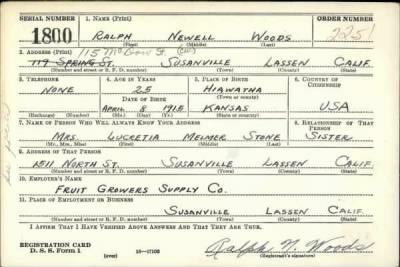 SERIAL NUMBER 1. NAME (Print) ORDER NUMBER
1800 RALPH NEWELL WOODS 2251
(First) (Middle) (Last)
2. ADDRESS (Print) 115 McGow St. (CW)
119 SPRING ST. SUSANVILLE LASSEN CALIF.
(Number and street or R. F. D. number) (Town) (County) (State)
3. TELEPHONE 4. AGE IN YEARS 5. PLACE OF BIRTH 6. COUNTRY OF CITIZENSHIP
NONE 25 HIAWATHA
DATE OF BIRTH (Town or county)
APRIL 8 1915 KANSAS USA
(Exchange) (Number) (Mo.) (Day) (Yr.) (State or country)
7. NAME OF PERSON WHO WILL ALWAYS KNOW YOUR ADDRESS 8. RELATIONSHIP OF THAT PERSON
MRS. LUCRETIA MELMER STONE SISTER
(Mr., Mrs., Miss) (First) (Middle) (Last)
9. ADDRESS OF THAT PERSON
1511 NORTH ST. SUSANVILLE LASSEN CALIF.
(Number and street or R. F. D. number) (Town) (County) (State)
10. EMPLOYER'S NAME
FRUIT GROWERS SUPPLY CO.
11. PLACE OF EMPLOYMENT OR BUSINESS
SUSANVILLE LASSEN CALIF.
(Number and street or R. F. D. number) (Town) (County) (State)
I AFFIRM THAT I HAVE VERIFIED ABOVE ANSWERS AND THAT THEY ARE TRUE.
REGISTRATION CARD
D. S. S. Form 1 (over) 16—17105 Ralph N. Woods
(Registrant's signature)